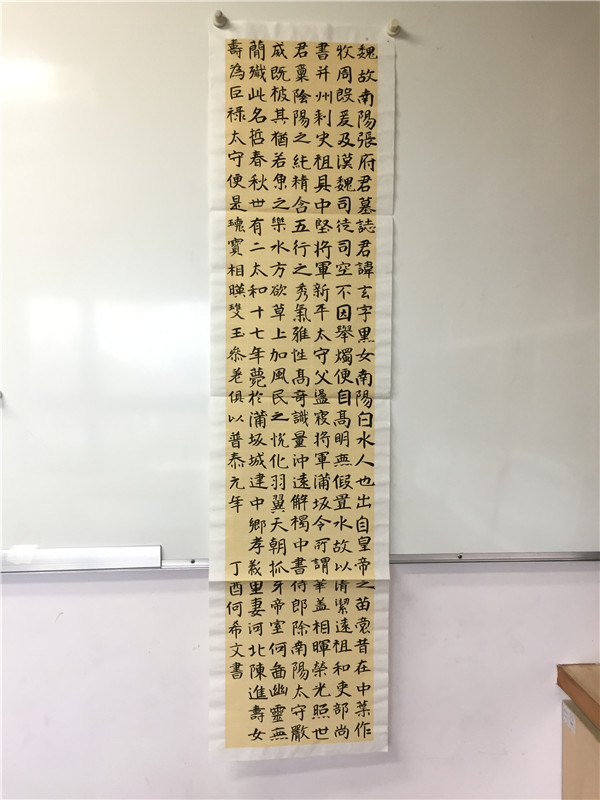 魏故南陽張府君墓誌君諱玄字黑女南陽白水人也出自皇帝之苗裔昔在中葉作
牧周殷爰及漢魏司徒司空不因舉燭便自高明無假置水故以清潔遠祖和吏部尚
書并州刺史祖具中堅將軍新平太守父盪寇將軍蒲坂令所謂華蓋相暉榮光照世
君稟陰陽之純精含五行之秀氣雅性高奇識量沖遠解褐中書侍郎除南陽太守嚴
威既被其猶若魚之樂水方欲草上加風民之悅化羽翼天朝抓牙帝室何啚幽靈無
簡殲此名哲春秋世有二太和十七年薨於蒲坂城建中鄉孝義里妻河北陳進壽女
壽為巨祿太守便是瓌寶相暎瓊玉參差俱以普泰元年 丁酉何希文書